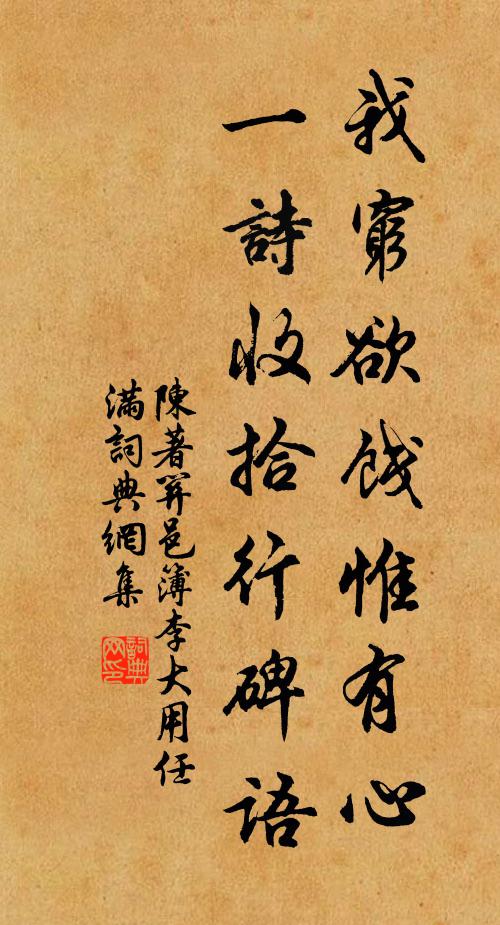 我窮欲餞惟有心
一詩收拾行碑語
陳著羿邑簿李大用任
滿詞典網集
詞典
网印